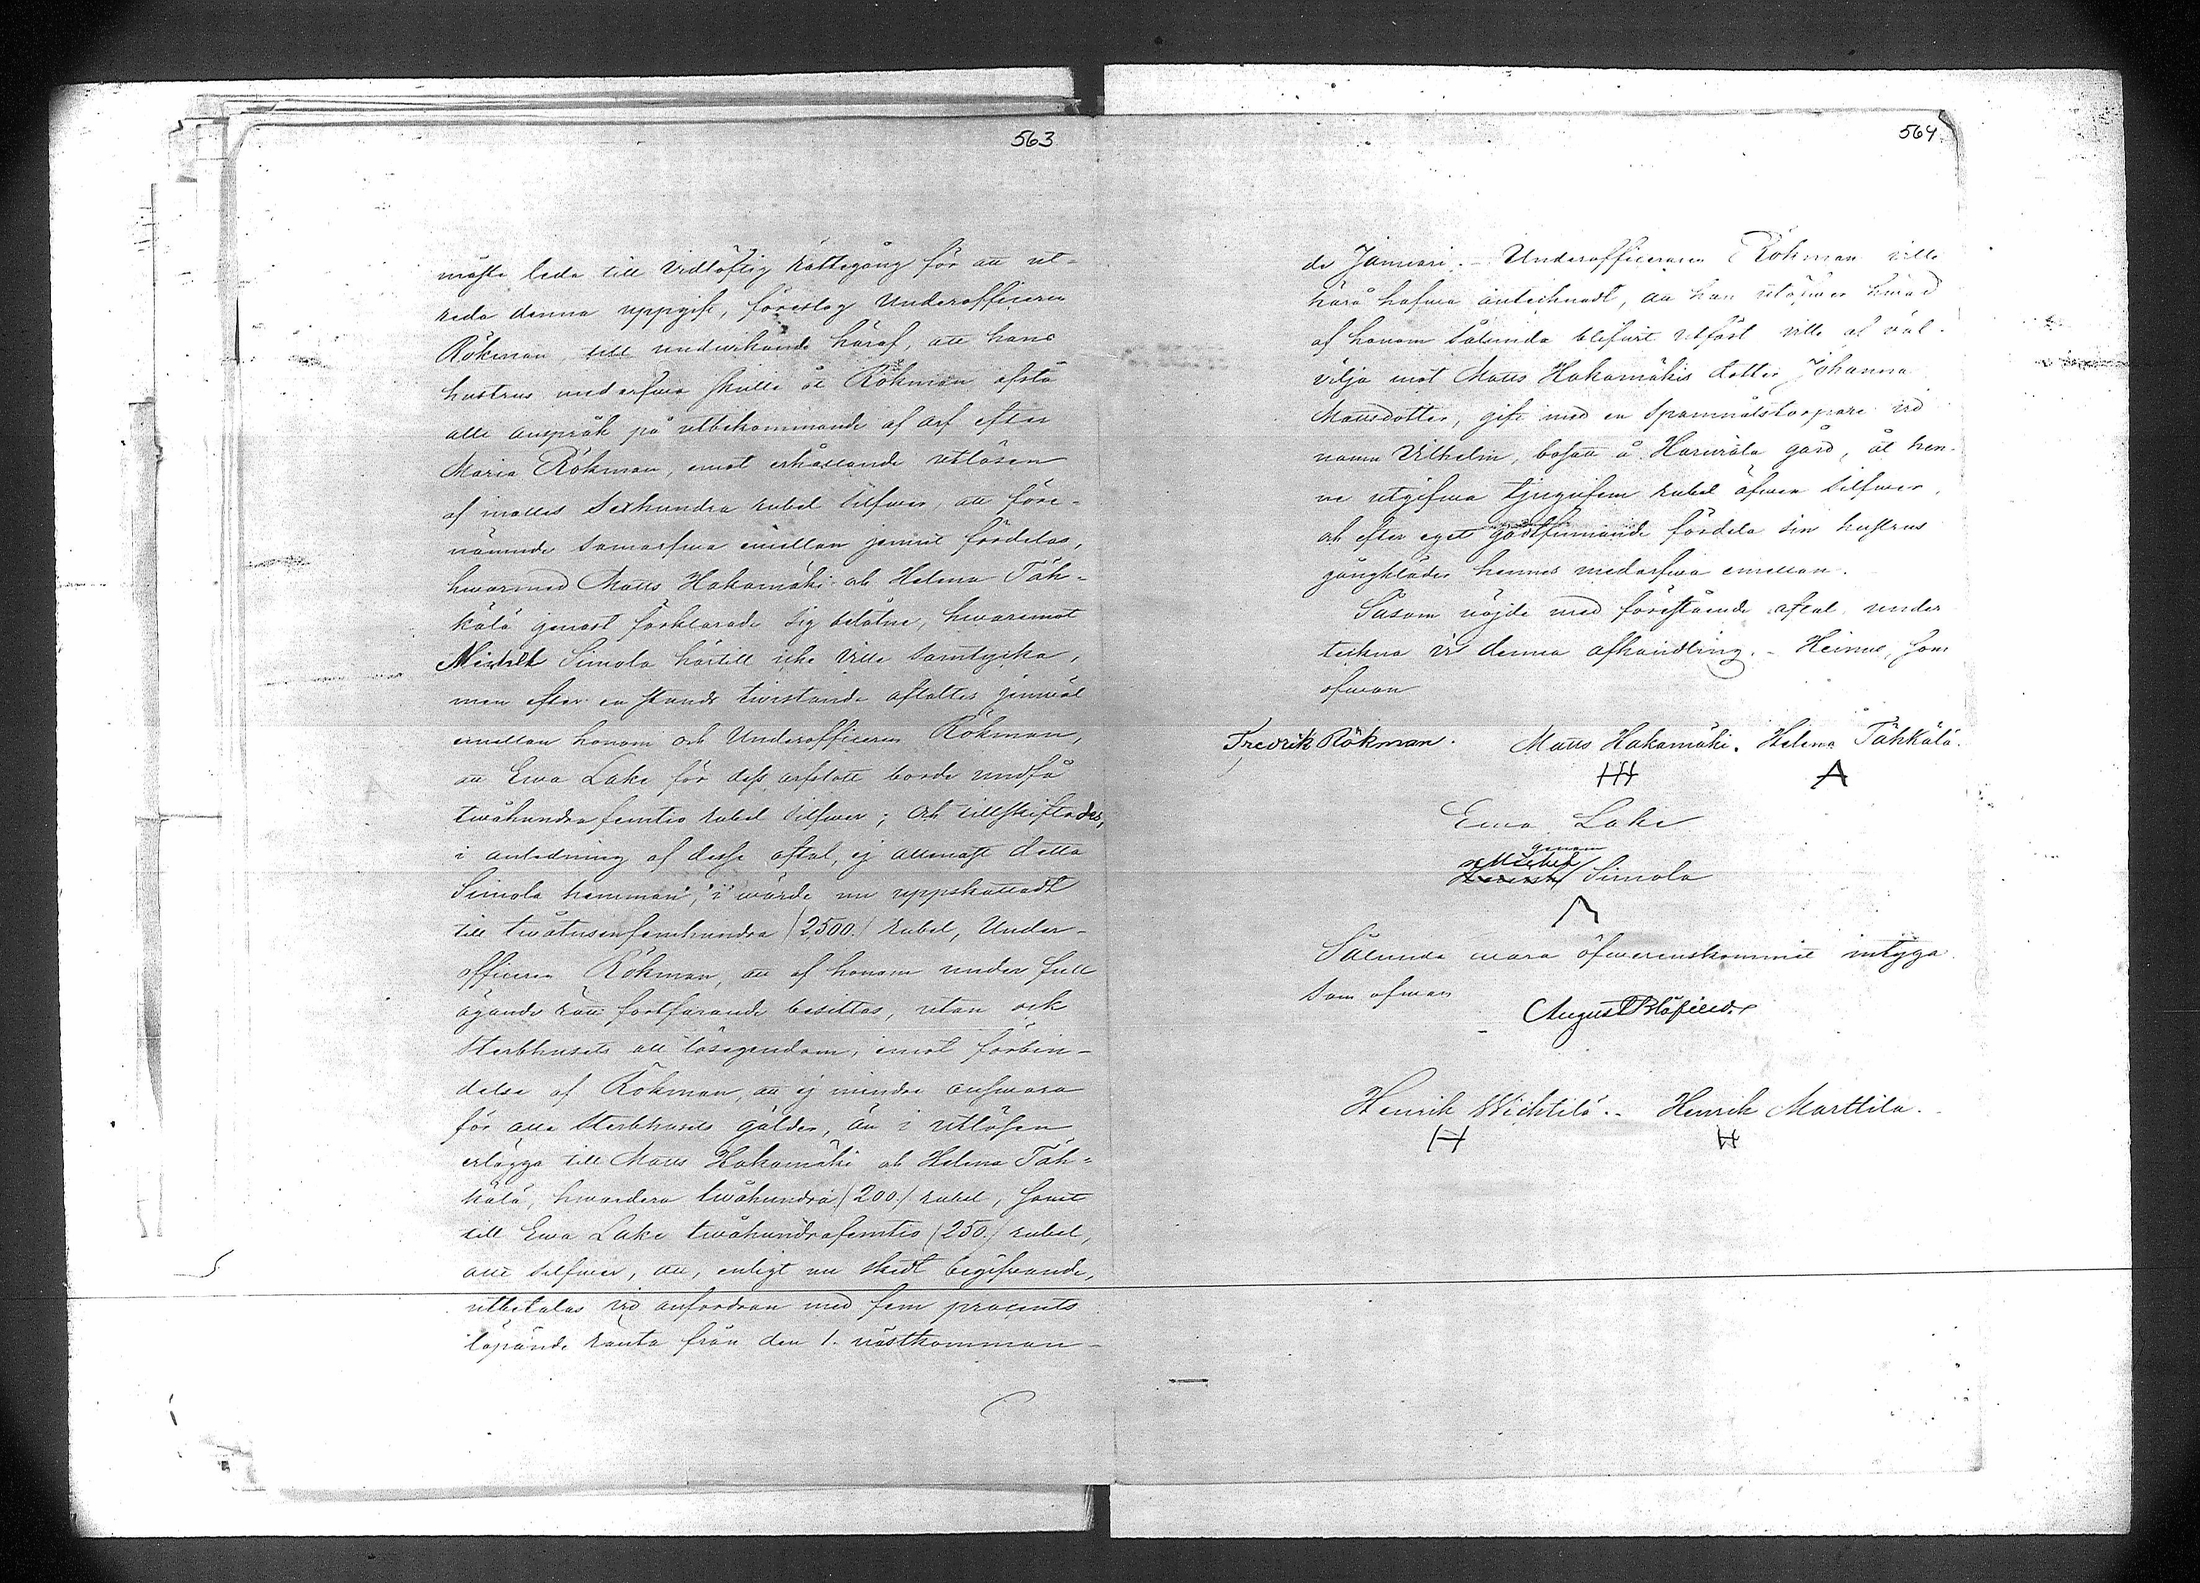 563
måste leda till vidlöftig rättegång för att ut-
reda denna uppgift, föreslog Underofficeren
Rökman, till undvikande häraf, att hans
hustrus medarfwa skulle åt Rökman afstå
allt anspråk på utbekommande af arf efter
Maria Rökman, emot erhållande utlösen
af inalles Sexhundra rubel silfwer, att före-
nämnde samarfwa emellan jemnt fördelas,
hwarmed Matts Hakamäki och Helena Täh-
kälä genast förklarade sig belåtne, hwaremot
Michel Simola härtill icke ville samtycka,
men efter en stunds twistande aftaltes jemwäl
emellan honom och Underofficeren Rökman,
att Ewa Lake för dess arfslott borde undfå
twåhundra femtio rubel silfwer; och tillskiftades,
i anledning af dessa aftal, ej allenast detta
Simola hemman, i wärde nu uppskattadt
till twåtusenfemhundra (2,500.) rubel, Under-
officeren Rökman, att af honom under full
ägande rätt fortfarande besittas, utan ock
sterbhusets all lösegendom, emot förbin-
delse af Rökman, att ej mindre answara
för alla sterbhusets gälder, än i utlösen
erlägga till Matts Hakamäki och Helena Täh-
kälä, hwardera twåhundra (200.) rubel, samt
till Ewa Lake twåhundrafemtio (250.) rubel,
allt silfwer, att, enligt nu skedt begifwande,
utbetalas wid anfordran med fem procents
löpande ränta från den 1. nästkomman-
564
de Januari. - Underofficeraren Rökman ville
härå hafwa antecknadt, att han utöfwer hwad
af honom sålunda blifwit utfäst ville af väl-
vilja mot Matts Hakamäkis dotter Johanna
Mattsdotter, gift med en Spannmålstorpare vid
namn Vilhelm, bosatt å Harwiala gård, åt hen-
ne utgifwa tjugufem rubel äfwen silfwer,
och efter eget godtfinnande fördela sin hustrus
gångkläder hennes medarfwa emellan.
Såsom nöjde med förestående aftal under
teckna vi denna afhandling. - Heinue, som
ofwan
Fredrik Rökman. Matts Hakamäki. Helena Tähkälä.
Ewa Lake
genom
Michel
Henrik Simola
Sålunda wara öfwerenskommit intyga
som ofwan
August Blåfield.
Henrik Wichtilä. - Henrik Marttila.